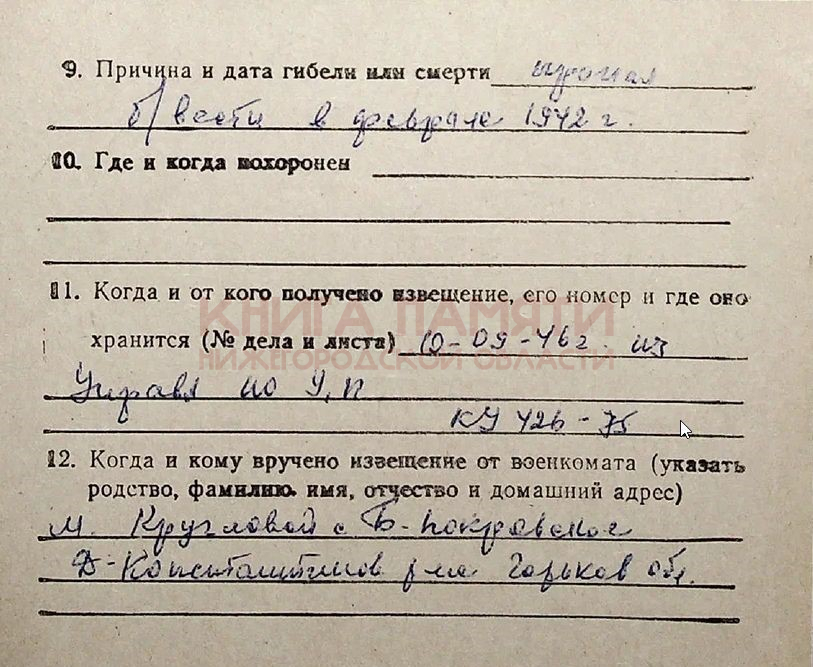 9. Причина и дата гибели или смерти пропал
б/вести в феврале 1942 г.
10. Где и когда похоронен
11. Когда и от кого получено извещение, его номер и где оно
КНИГА ПАМЯТИ
хранится (№ дела и листа) 10-09-46 г. из
НИЖЕГОРОДСКОЙ ОБЛАСТИ
Управл по У,П
КУ 426-75
12. Когда и кому вручено извещение от военкомата (указать
родство, фамилию, имя, отчество и домашний адрес)
м. Кругловой с Б-Покровское
Д-Константинов р-на Горьков обл.